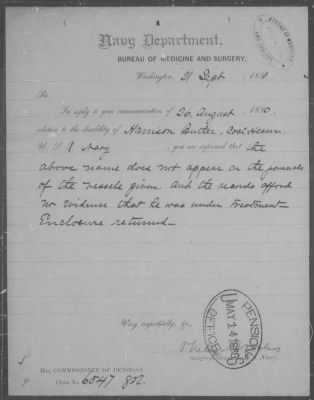 Navy Department,
BUREAU OF MEDICINE AND SURGERY,
Washington, 21 Sept 1880
Sir:
In reply to your communication of 20. August 1880
relative to the disability of Harrison Butler, Coal Heaver
U. S. Navy, you are informed that the
above name does not appear on the journals
of the vessels given. And the records afford
no evidence that he was under treatment
Enclosure returned
Very respectfully, &c.,
Surgeon General U. S. Navy
PENSION
MAY 14
OFFICE
Hon. COMMISSIONER OF PENSIONS,
Claim No. 6547